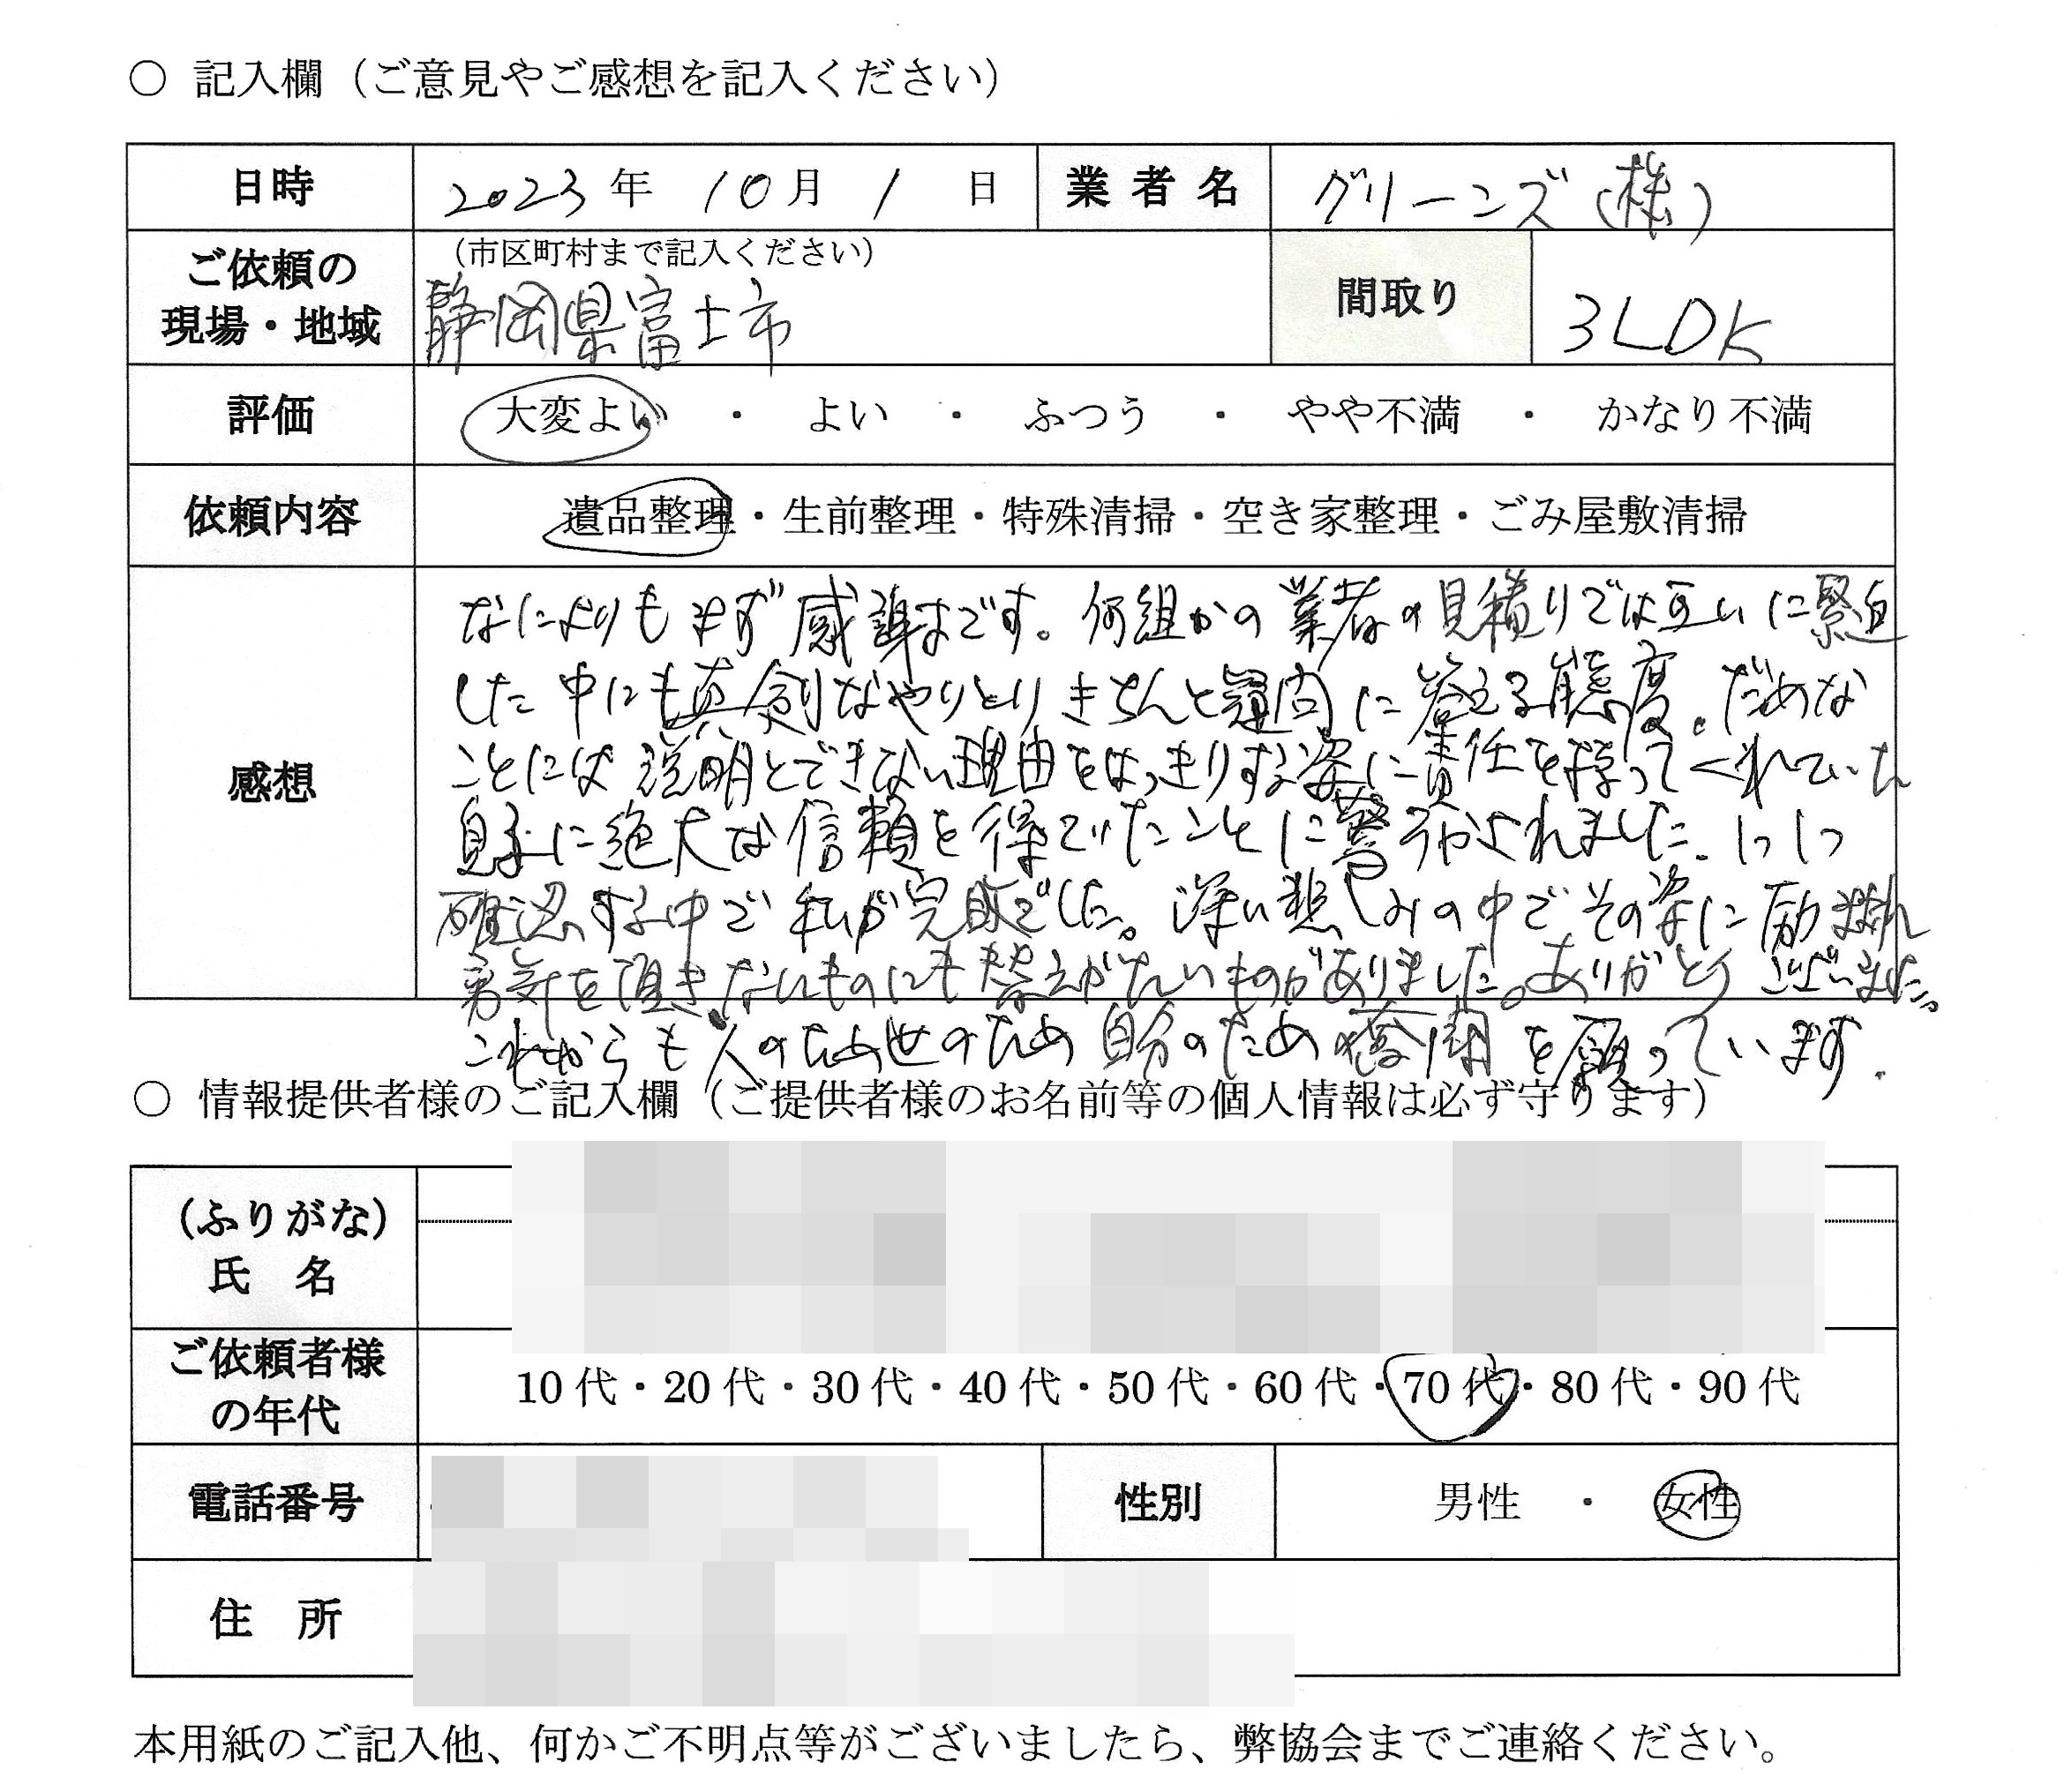 ○ 記入欄（ご意見やご感想を記入ください）
日時 2023年 10月 1日 業者名 グリーンズ(株)
ご依頼の現場・地域 （市区町村まで記入ください） 静岡県富士市 間取り 3LDK
評価 大変よい ・ よい ・ ふつう ・ やや不満 ・ かなり不満
依頼内容 遺品整理・生前整理・特殊清掃・空き家整理・ごみ屋敷清掃
感想
なによりもまず感謝までです。何組かの業者の見積りでは互いに緊迫
した中にも真剣なやりとりきちんと質問に答える態度。だめな
ことには説明とできない理由をはっきりする姿に責任を持ってくれていた
息子に絶大な信頼を得ていたことに驚かされました。
確認する中で私が完敗でした。深い悲しみの中でその姿に励まされ
勇気を頂き、ないものにも替えがたいものがありました。ありがとうございました。
これからも人のため世のため自分のため奮闘を願っています.
○ 情報提供者様のご記入欄（ご提供者様のお名前等の個人情報は必ず守ります）
（ふりがな）
氏 名
ご依頼者様の年代 10代・20代・30代・40代・50代・60代・70代・80代・90代
電話番号 性別 男性 ・ 女性
住 所
本用紙のご記入他、何かご不明点等がございましたら、弊協会までご連絡ください。